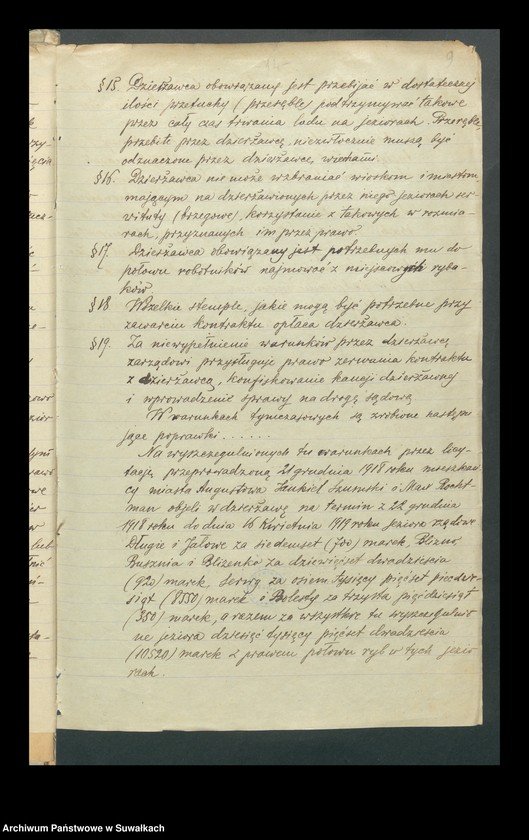 9
§15. Dzierżawca obowiązany jest przebijać w dostatecznej
ilości przetuchy (przeręble) podtrzymywać takowe
przez cały czas trwania lodu na jeziorach. Przeręble,
przebite przez dzierżawcę, niezwłocznie muszą być
odznaczone przez dzierżawcę wiechami.
§16. Dzierżawca nie może wzbraniać wioskom i
mającym na dzierżawionych przez niego jeziorach ser-
wituty (brzegowe), korzystanie z takowych w rozmia-
rach, przyznanych im przez prawo.
§17. Dzierżawca obowiązany jest potrzebnych mu do
połowu robotników najmować z miejscowych ryba-
ków.
§18 Wszelkie stemple, jakie mogą być potrzebne przy
zawarciu kontraktu opłaca dzierżawca.
§19. Za niewypełnienie warunków przez dzierżawcę
zarządowi przysługuje prawo zerwania kontraktu
z dzierżawcą, konfiskowanie kaucji dzierżawnej
i wprowadzenie sprawy na drogę sądową
W warunkach tymczasowych są zrobione następu
jące poprawki . . . . . .
Na wyszczególnionych tu warunkach przez licy-
tację przeprowadzoną 21 grudnia 1918 roku mieszkań
cy miasta Augustowa Jankiel Szumski i Rocht
man objęli w dzierżawę na termin z 22 grudnia
1918 roku do dnia 16 Kwietnia 1919 roku jeziora rządowe
Długie i Jałowe za siedemset (700) marek, Blizno,
Busznia i Blizenko za dziewięćset dwadzieścia
(920) marek, Serwy za osiem tysięcy pięćset pięćdzie-
siąt (8550) marek i Bolesty za trzysta pięćdziesiąt
(350) marek, a razem za wszystkie tu wyszczególnio
ne jeziora dziesięć tysięcy pięćset dwadzieścia
(10520) marek z prawem połowu ryb w tych jezio
rach.
Archiwum Państwowe w Suwałkach